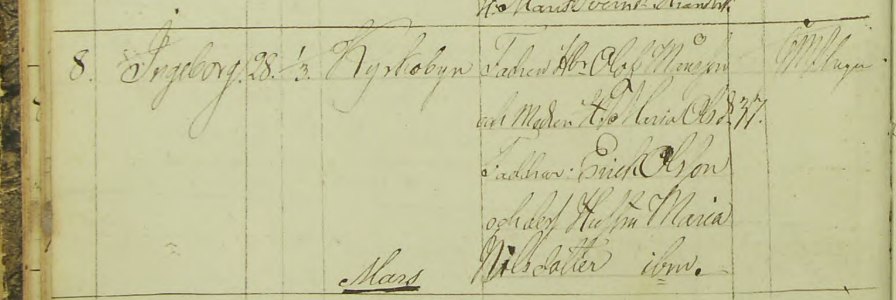 8. Ingeborg. 28. 1/3. Kyrkobyn Fadren Åbr Olof Månsson
och Modren H. Maria Olsdr 37.
Faddrar: Erick Olsson
och dess Hustru Maria
Nilsdotter ibm.
Mars